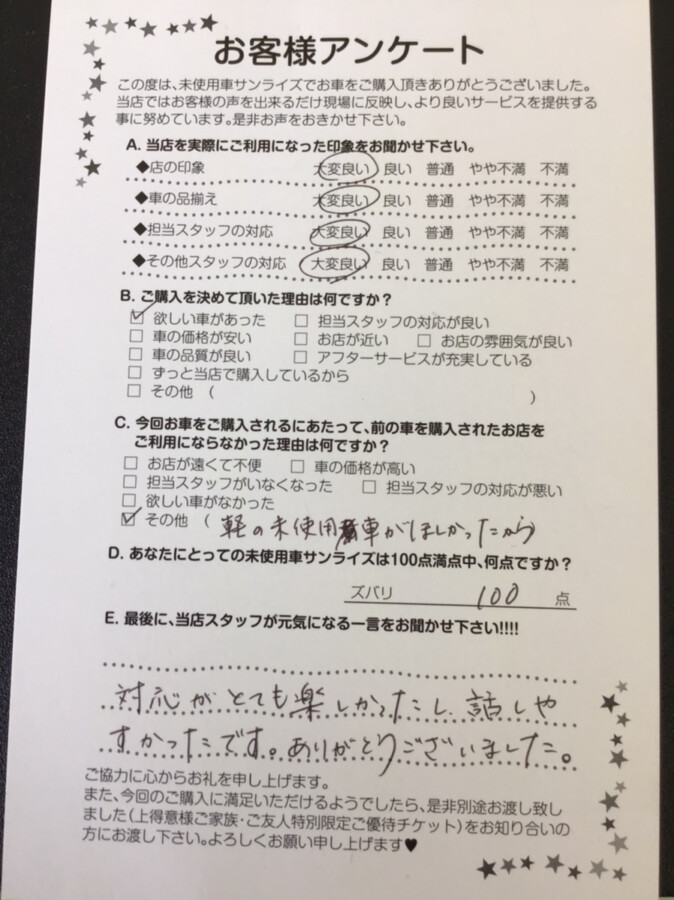 お客様アンケート
この度は、未使用車サンライズでお車をご購入頂きありがとうございました。
当店ではお客様の声を出来るだけ現場に反映し、より良いサービスを提供する
事に努めています。是非お声をおきかせ下さい。
A. 当店を実際にご利用になった印象をお聞かせ下さい。
◆店の印象 大変良い 良い 普通 やや不満 不満
◆車の品揃え 大変良い 良い 普通 やや不満 不満
◆担当スタッフの対応 大変良い 良い 普通 やや不満 不満
◆その他スタッフの対応 大変良い 良い 普通 やや不満 不満
B. ご購入を決めて頂いた理由は何ですか?
☑ 欲しい車があった □ 担当スタッフの対応が良い
□ 車の価格が安い □ お店が近い □ お店の雰囲気が良い
□ 車の品質が良い □ アフターサービスが充実している
□ ずっと当店で購入しているから
□ その他 ( )
C. 今回お車をご購入されるにあたって、前の車を購入されたお店を
ご利用にならなかった理由は何ですか?
□ お店が遠くて不便 □ 車の価格が高い
□ 担当スタッフがいなくなった □ 担当スタッフの対応が悪い
□ 欲しい車がなかった
☑ その他 ( 軽の未使用車がほしかったから)
D. あなたにとっての未使用車サンライズは100点満点中、何点ですか?
ズバリ 100 点
E. 最後に、当店スタッフが元気になる一言をお聞かせ下さい!!!!
対応がとても楽しかったし、話しや
すかったです。ありがとうございました。
ご協力に心からお礼を申し上げます。
また、今回のご購入に満足いただけるようでしたら、是非別途お渡し致し
ました(上得意様ご家族・ご友人特別限定ご優待チケット)をお知り合いの
方にお渡し下さい。よろしくお願い申し上げます♥